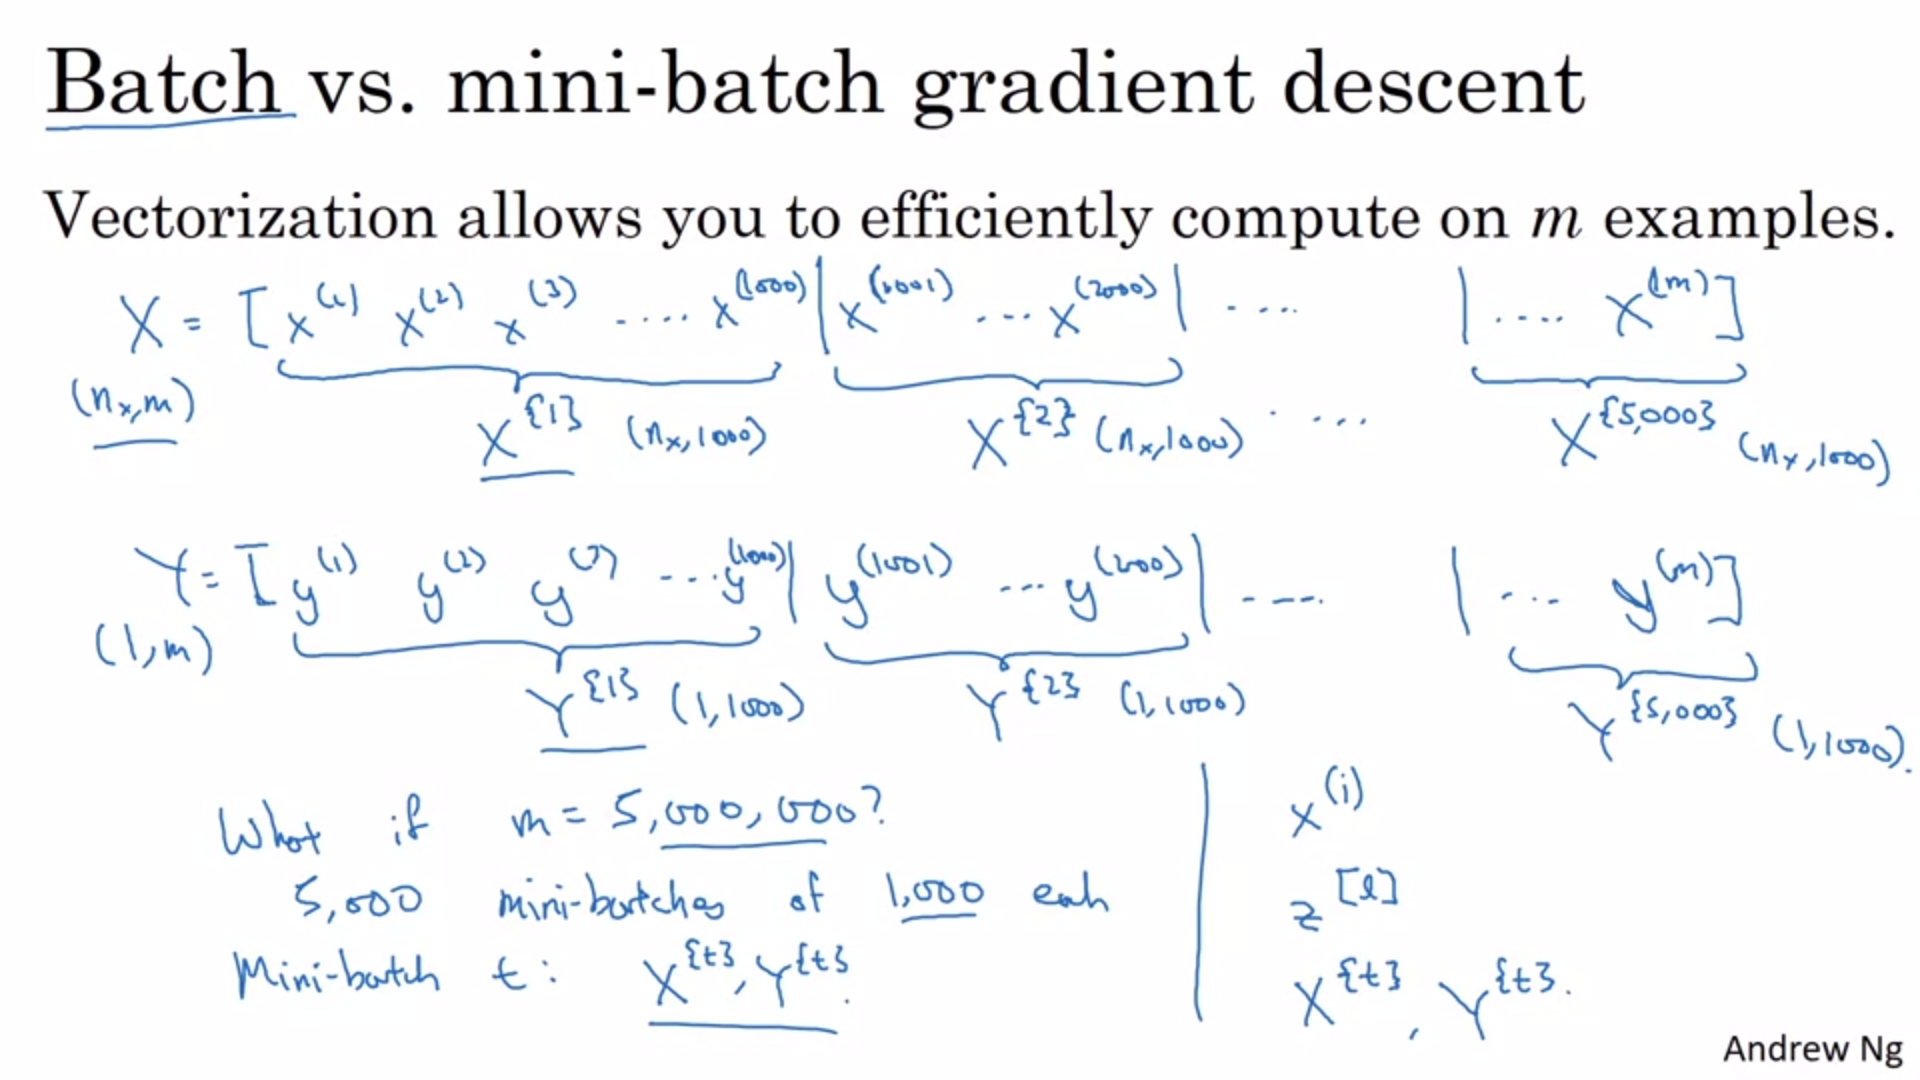 Batch vs. mini-batch gradient descent
Vectorization allows you to efficiently compute on m examples.
X = [x^(1) x^(2) x^(3) .... x^(1000) | x^(1001) ... x^(2000) | .... | .... x^(m)]
(n_x, m)
X^{1} (n_x, 1000) X^{2} (n_x, 1000) .... X^{5,000} (n_x, 1000)
Y = [y^(1) y^(2) y^(3) ... y^(1000) | y^(1001) ... y^(200) | ---- | ... y^(m)]
(1, m)
Y^{1} (1, 1000) Y^{2} (1, 1000) Y^{5,000} (1, 1000).
What if m = 5,000,000?
5,000 mini-batches of 1,000 each
Mini-batch t: X^{t}, Y^{t}.
x^(i)
z^[l]
X^{t}, Y^{t}.
Andrew Ng